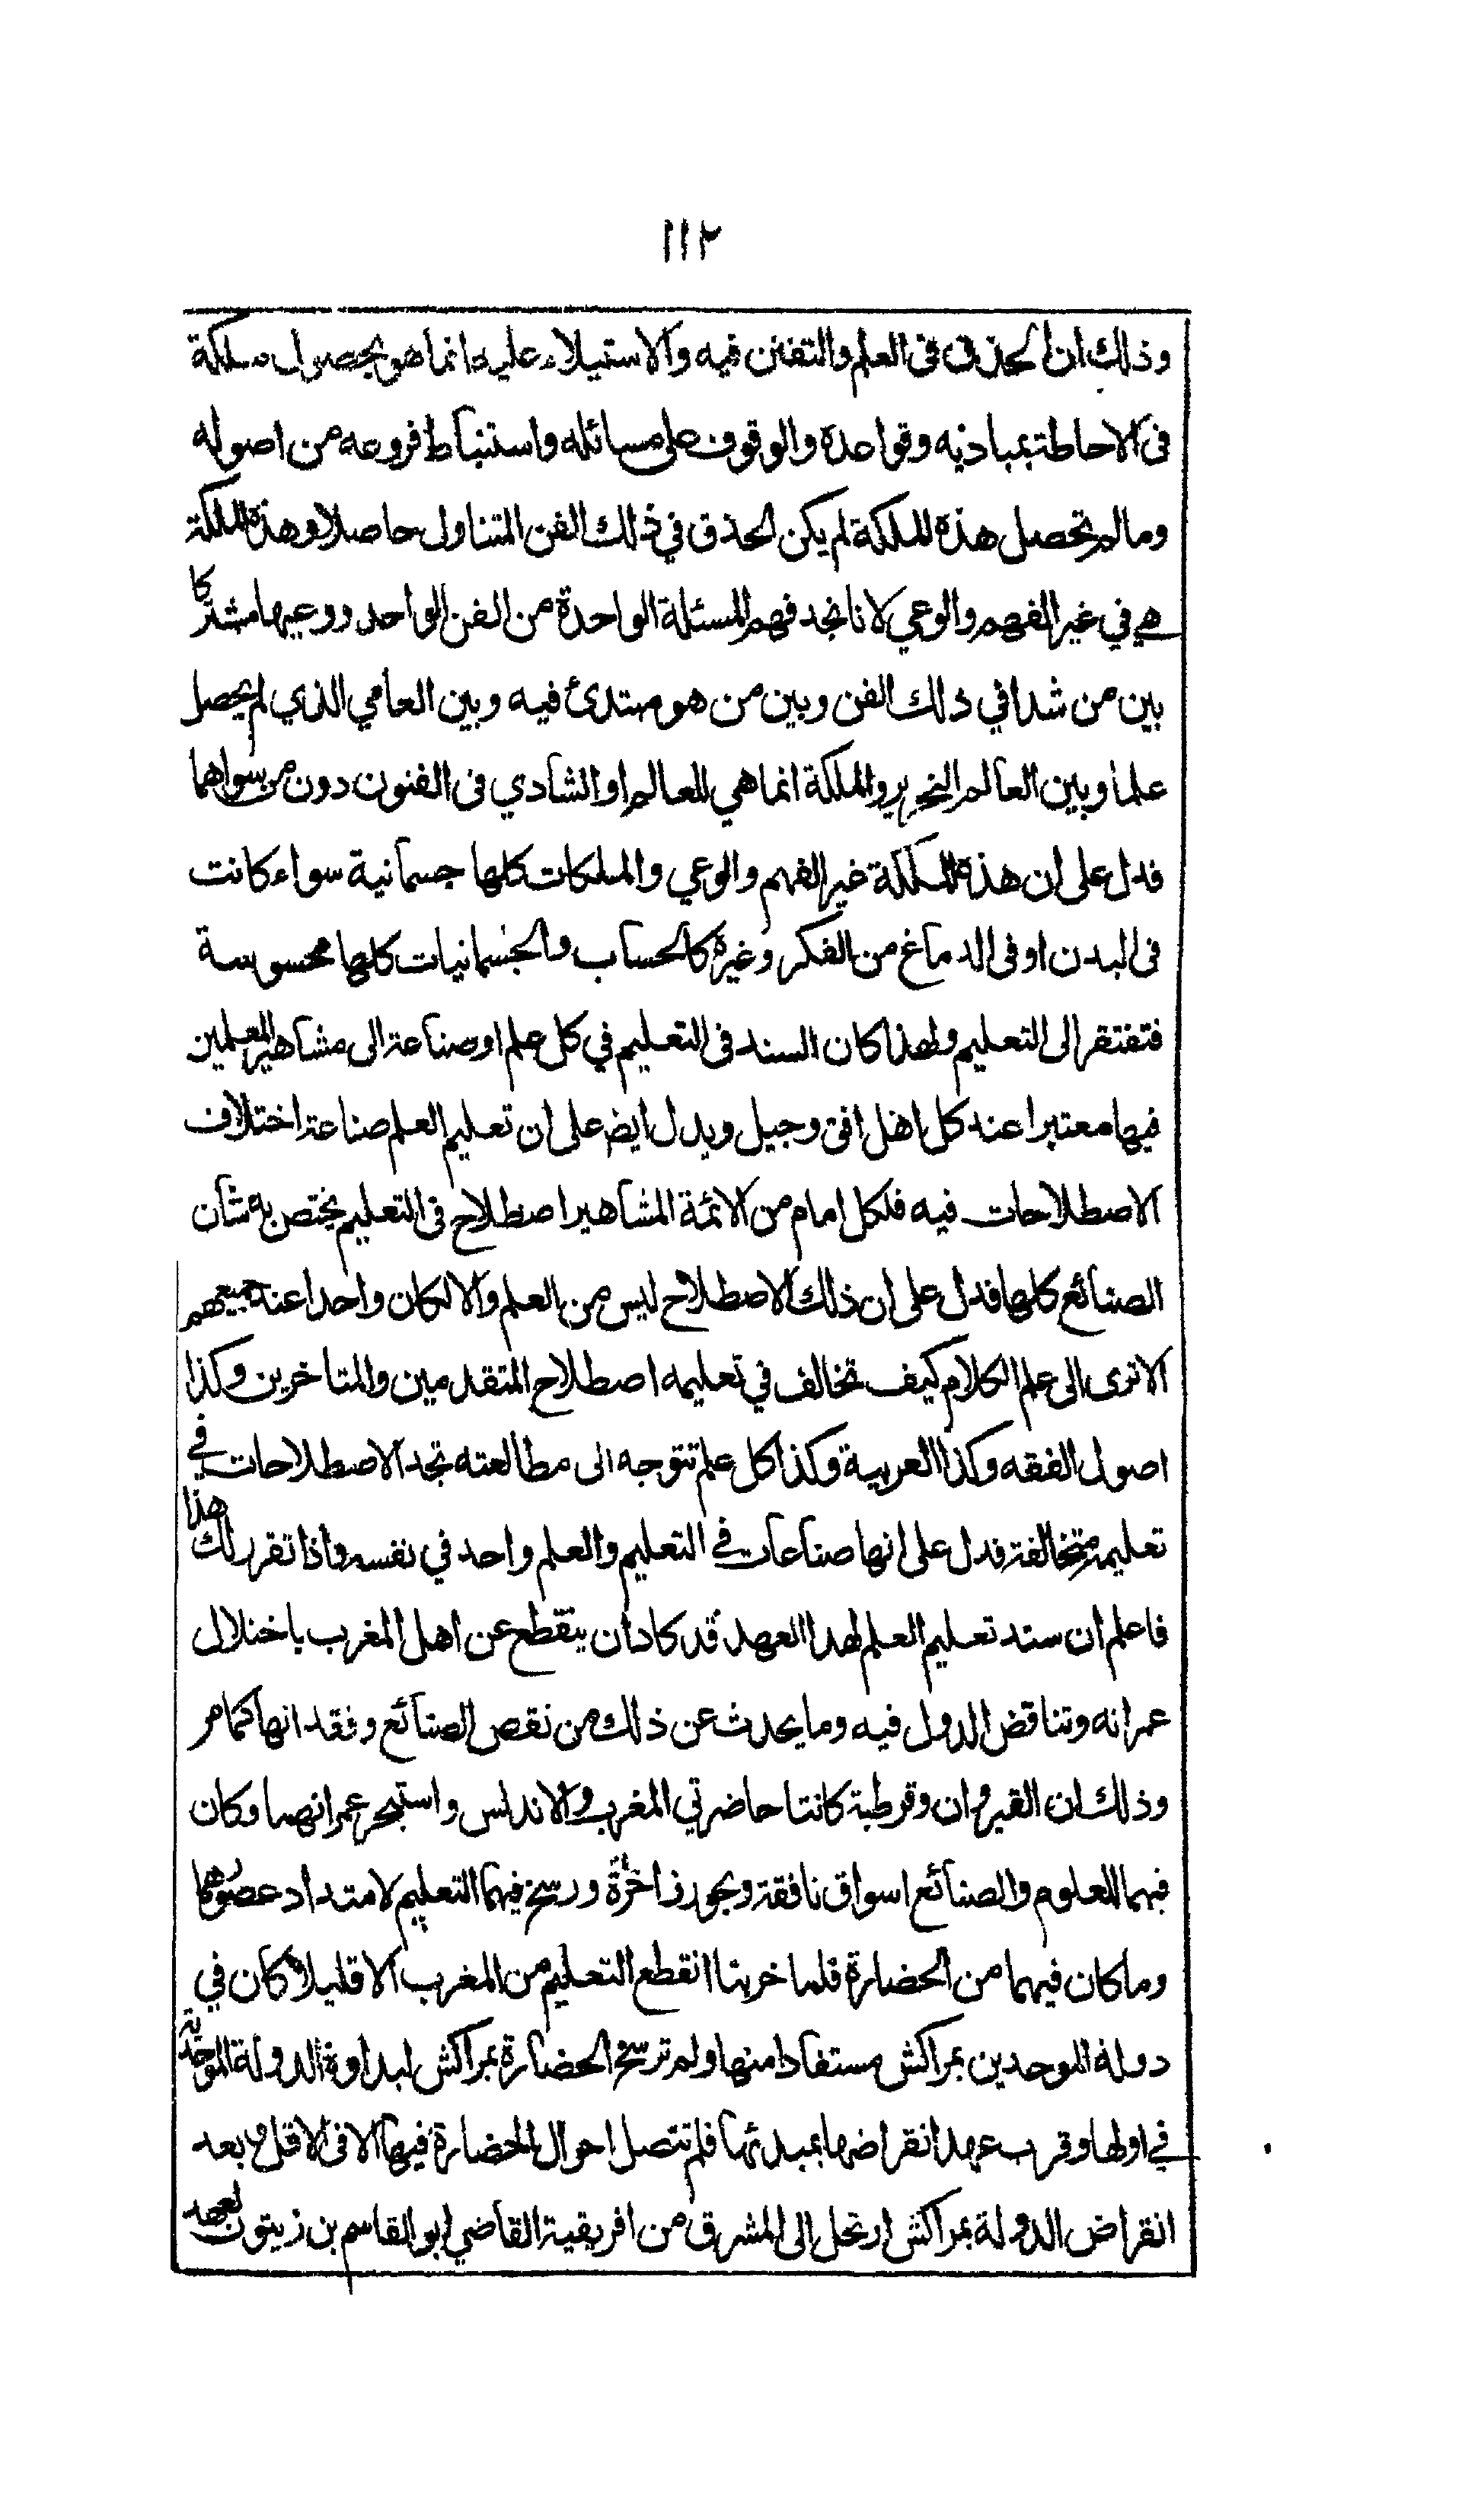 ١١٢
وذلك ان الحذق فى العلم والتفنن فيه والاستيلاء عليه انما هو بحصول ملكة
فى الاحاطة بمباديه وقواعده والوقوف على مسائله واستنباط فروعه من اصوله
وما لم تحصل هذه الملكة لم يكن الحذق في ذلك الفن المتناول حاصلا وهذه الملكة
هي في غير الفهم والوعي لانا نجد فهم المسئلة الواحدة من الفن الواحد ووعيها مشتركا
بين من شدا في ذلك الفن وبين من هو مبتدئ فيه وبين العامي الذي لم يحصل
علما وبين العالم النحرير والملكة انما هي للعالم او الشادي فى الفنون دون من سواهما
فدل على ان هذه الملكة غير الفهم والوعي والملكات كلها جسمانية سواء كانت
فى البدن او فى الدماغ من الفكر وغيره كالحساب والجسمانيات كلها محسوسة
فتفتقر الى التعليم ولهذا كان السند فى التعليم في كل علم او صناعة الى مشاهير المعلمين
فيها معتبرا عند كل اهل افق وجيل ويدل ايضا على ان تعليم العلم صناعة اختلاف
الاصطلاحات فيه فلكل امام من الائمة المشاهير اصطلاح فى التعليم يختص به شأن
الصنائع كلها فدل على ان ذلك الاصطلاح ليس من العلم والا لكان واحدا عند جميعهم
الا ترى الى علم الكلام كيف تخالف في تعليمه اصطلاح المتقدمين والمتاخرين وكذا
اصول الفقه وكذا العربية وكذا كل علم تتوجه الى مطالعته تجد الاصطلاحات في
تعليمه متخالفة فدل على انها صناعات في التعليم والعلم واحد في نفسه واذا تقرر لك هذا
فاعلم ان سند تعليم العلم لهذا العهد قد كاد ان ينقطع عن اهل المغرب باختلال
عمرانه وتناقض الدول فيه وما يحدث عن ذلك من نقص الصنائع وفقدانها كما مر
وذلك ان القيروان وقرطبة كانتا حاضرتي المغرب والاندلس واستبحر عمرانهما وكان
فيهما للعلوم والصنائع اسواق نافقة وبحور زاخرة ورسخ فيهما التعليم لامتداد عصورهما
وما كان فيهما من الحضارة فلما خربتا انقطع التعليم من المغرب الا قليلا كان في
دولة الموحدين بمراكش مستفادا منها ولم ترسخ الحضارة بمراكش لبداوة الدولة الموحدية
في اولها وقرب عهد انقراضها بمبدئها فلم تتصل احوال الحضارة فيها الا فى الاقل وبعد
انقراض الدولة بمراكش ارتحل الى المشرق من افريقية القاضي ابو القاسم بن زيتون لعهد